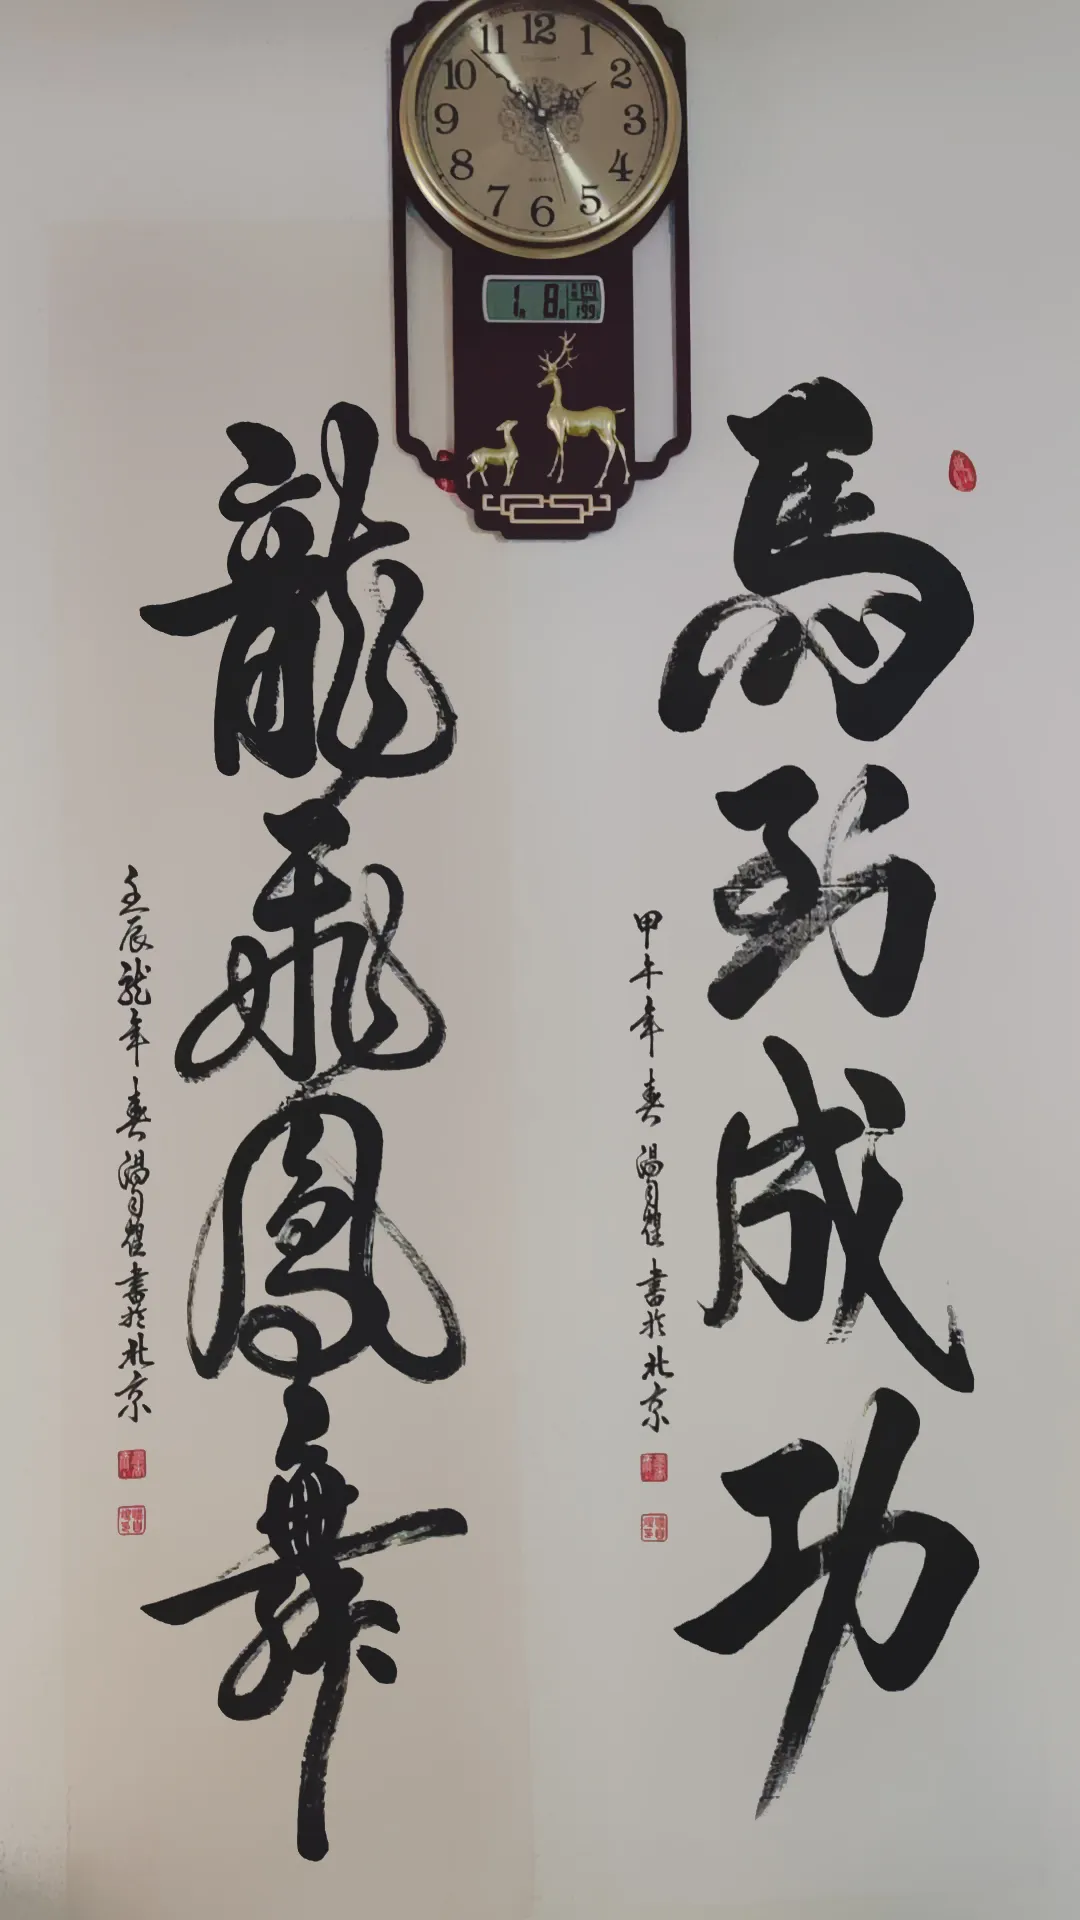 12
1
2
3
4
5
6
7
8
9
10
11
QUARTZ
1月 8日 四
馬到成功
甲午年春 書於北京
龍飛鳳舞
壬辰龍年春 書於北京